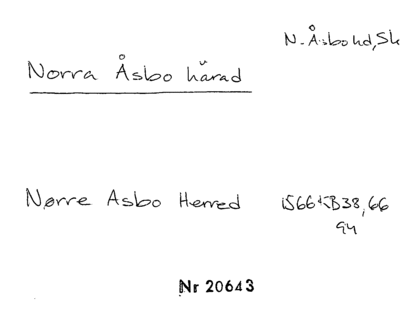 N. Åsbo hd, Sk
Norra Åsbo härad
Nørre Asbo Herred
1566 KB38, 66
94
Nr 20643